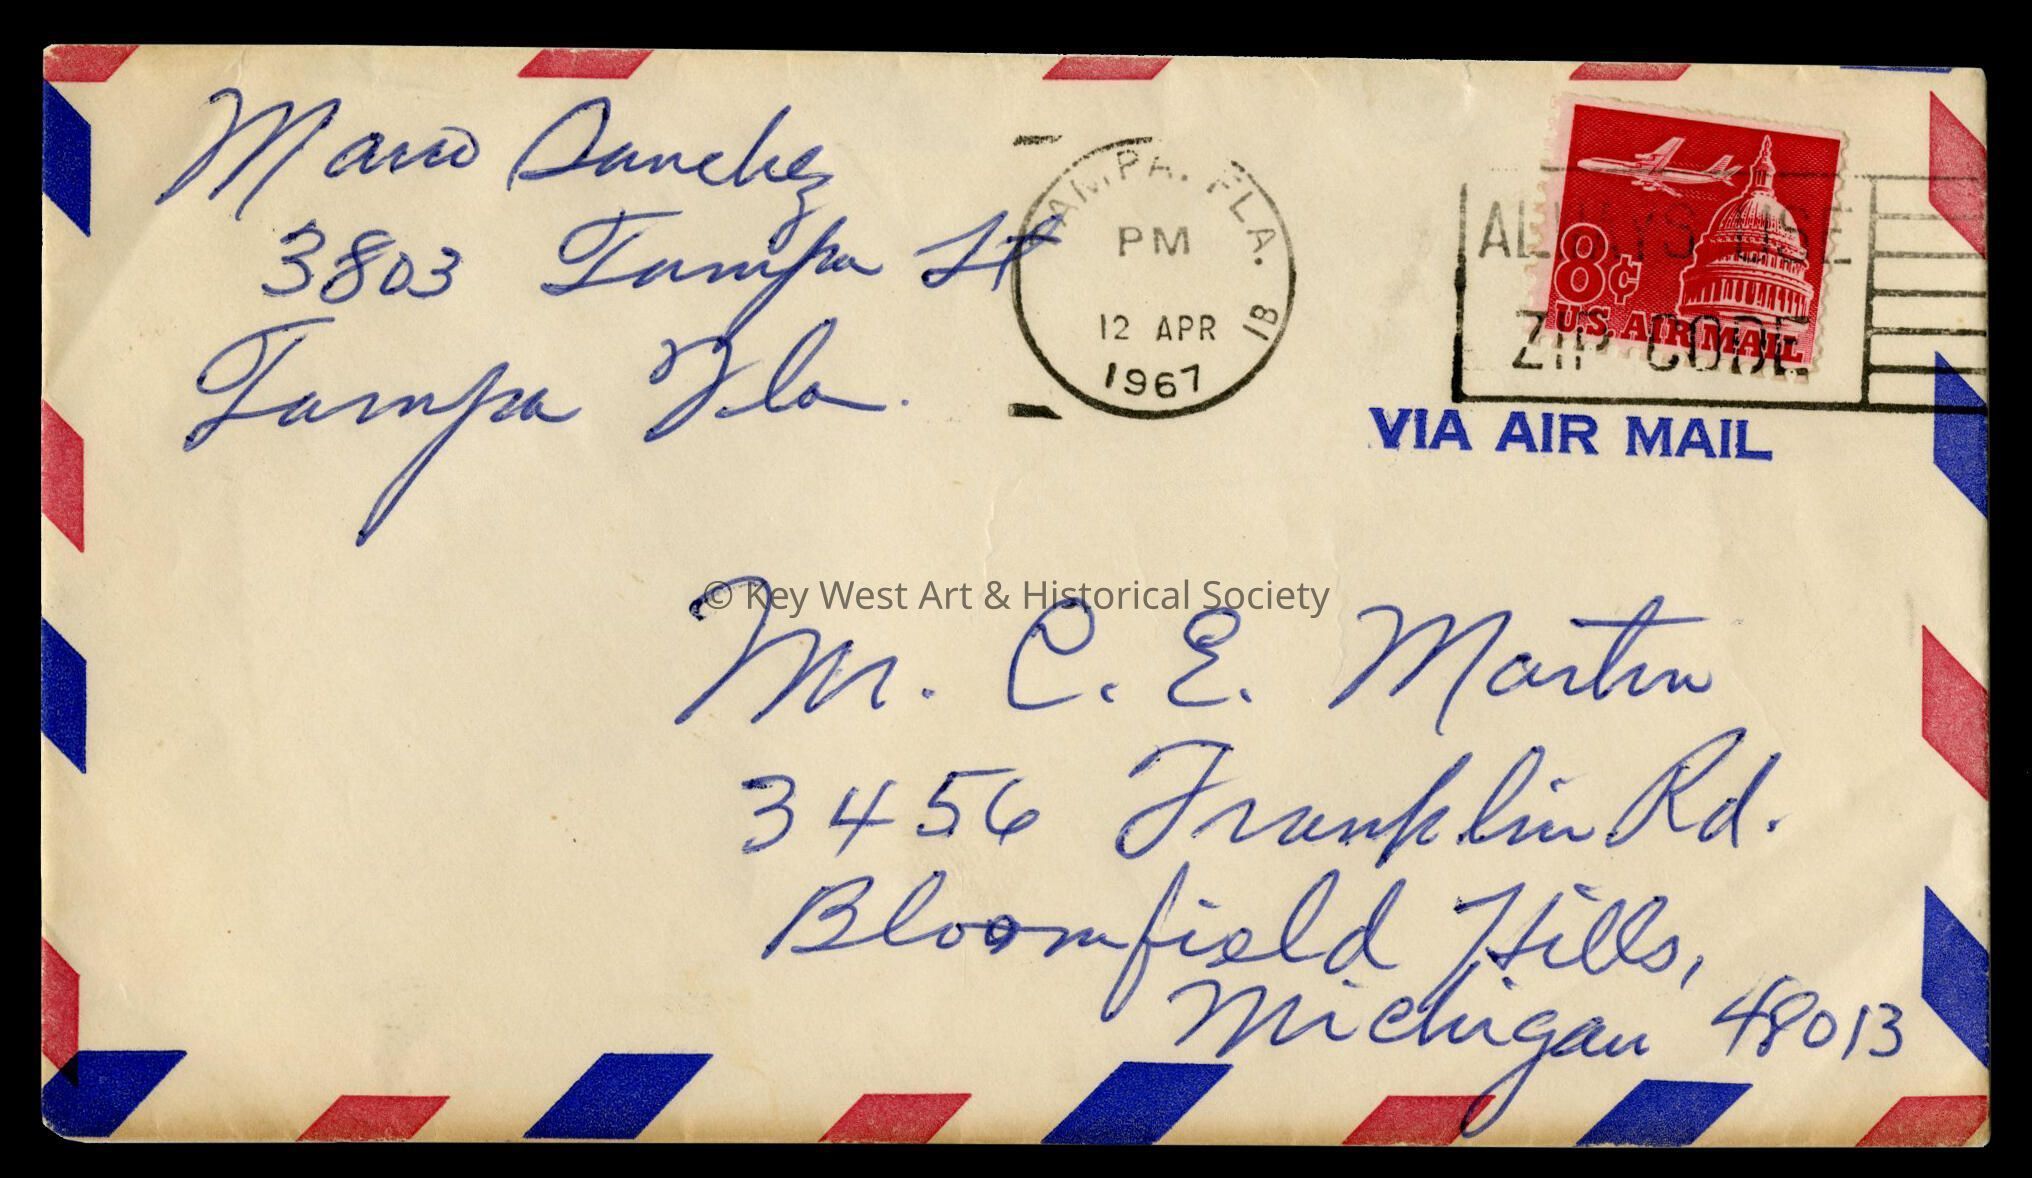 Mario Sanchez
3803 Tampa St
Tampa Fla.
TAMPA, FLA. 18
PM
12 APR
1967
ALWAYS USE
ZIP CODE
8¢
U.S. AIR MAIL
VIA AIR MAIL
© Key West Art & Historical Society
Mr. C. E. Martin
3456 Franklin Rd.
Bloomfield Hills,
Michigan 48013